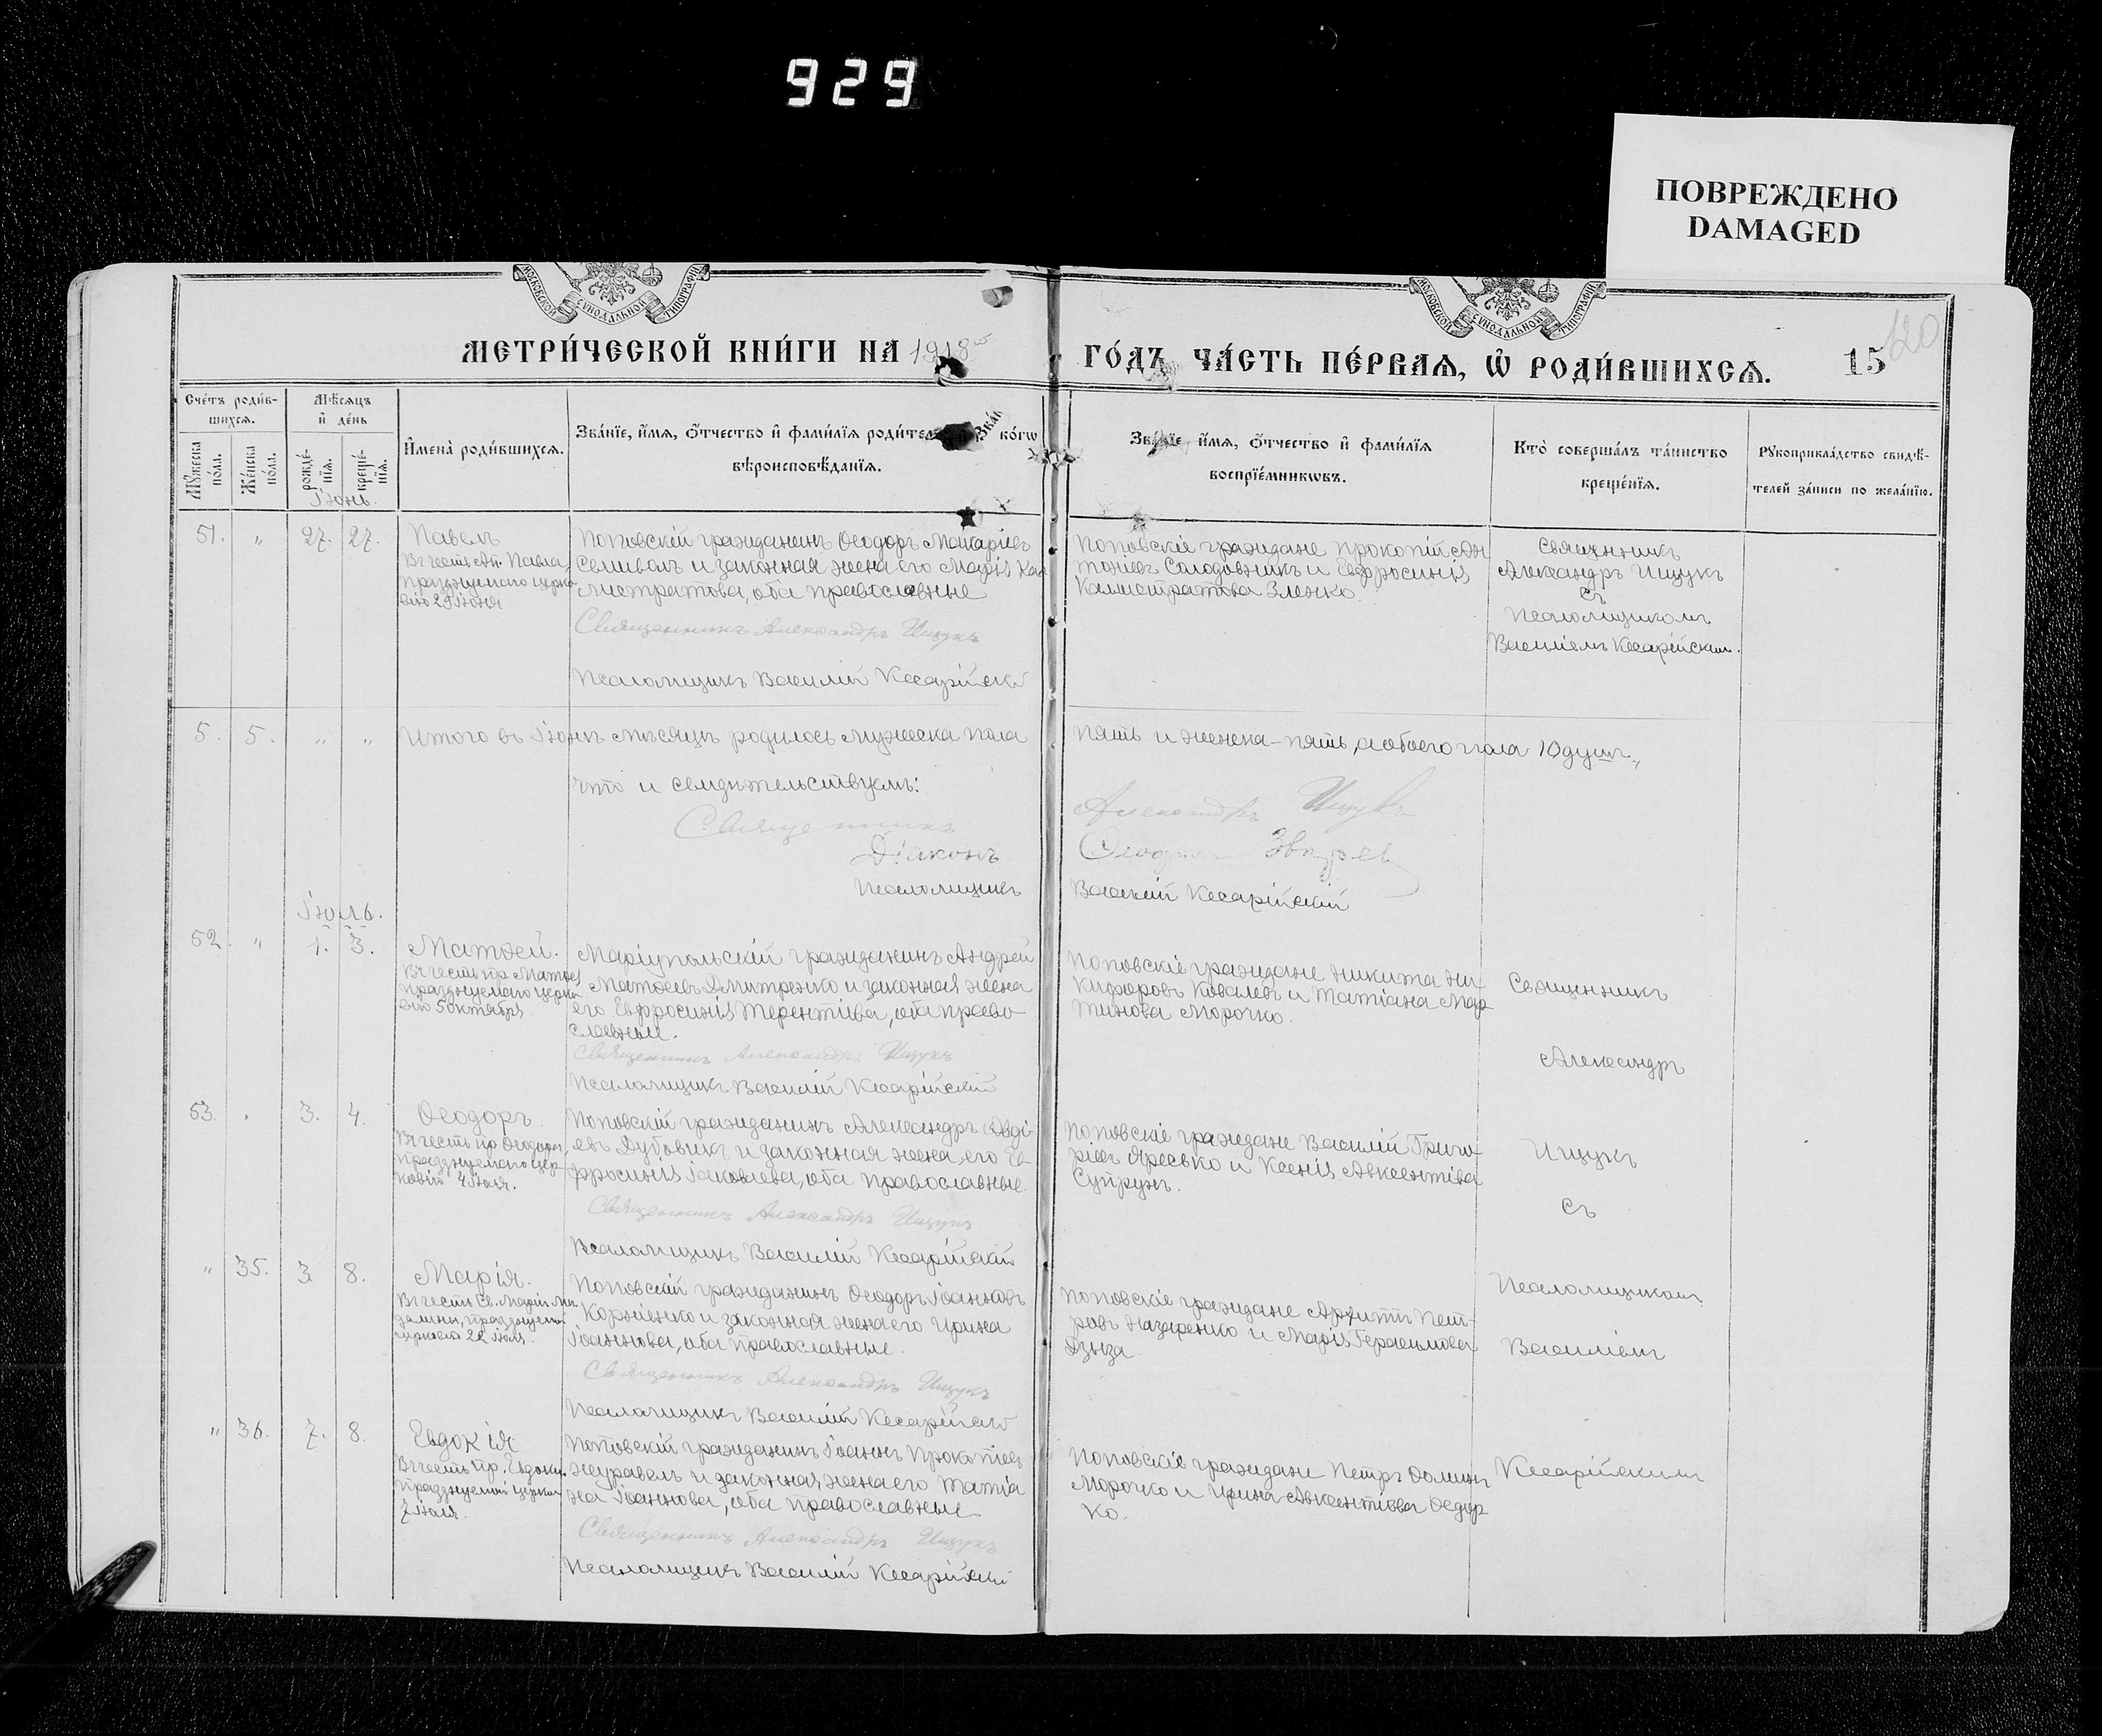 929
ПОВРЕЖДЕНО
DAMAGED
МОСКОВСКОЙ СѴНОДАЛЬНОЙ ТИПОГРАФІИ
МОСКОВСКОЙ СѴНОДАЛЬНОЙ ТИПОГРАФІИ
МЕТРИ́ЧЕСКОЙ КНИ́ГИ НА 1918
ГО́ДЪ ЧА́СТЬ ПЕ́РВАѦ, Ѡ҆ РОДИ́ВШИХСѦ.
15
120
Сче́тъ роди́в-
шихсѧ.
Мꙋ́жеска по́ла.
Же́нска по́ла.
Мѣ́сѧцъ
и҆ де́нь
рожде́-
нїѧ.
креще́-
нїѧ.
И҆мена̀ роди́вшихсѧ.
Зва́нїе, и҆́мѧ, ѻ҆́тчество и҆ фами́лїѧ родите ко́гѡ
вѣроисповѣ́данїѧ.
Зва́нїе, и҆́мѧ, ѻ҆́тчество и҆ фами́лїѧ
воспрїе́мникѡвъ.
Кто̀ соверша́лъ та́инство
креще́нїѧ.
Рꙋкоприкла́дство свидѣ́-
телей за́писи по жела́нїю.
Іюнь.
51. " 27. 27. Павелъ
Въ честь Ап. Павла,
празднуемаго церко-
вію 29 Іюня
Поповскій гражданинъ Ѳеодоръ Макаріевъ
Семиволъ и законная жена его Марія Кал
листратова, оба православные
Священникъ Александръ Ищукъ
Псаломщикъ Василій Кесарійскій
Поповскіе граждане Прокопій Ан
тоніевъ Солодовникъ и Евфросинія
Каллистратова Зленко.
Священникъ
Александръ Ищукъ
съ
Псаломщикомъ
Василіемъ Кесарійским.
5. 5. " " Итого въ Іюнѣ мѣсяцѣ родилось мужеска пола
пять и женска - пять, а обоего пола 10 душъ.,
что и свидѣтельствуемъ:
Священникъ Александръ Ищукъ
Діаконъ
Псаломщикъ Василій Кесарійскій
Іюль.
52. " 1. 3. Матѳей.
Въ честь пр. Матѳея
празднуемаго церко
вію 5 октября.
Маріупольскій гражданинъ Андрей
Матѳеевъ Дмитренко и законная жена
его Евфросинія Терентіева, оба право-
славные.
Священникъ Александръ Ищукъ
Псаломщикъ Василій Кесарійскій
Поповскіе граждане Никита Ни-
кифоровъ Ковалевъ и Татіана Мар-
тинова Морочко.
Священникъ
Александръ
53. " 3. 4. Ѳеодоръ.
Въ честь пр. Ѳеодора,
празднуемаго цер-
ковію 4 Іюля.
Поповскій гражданинъ Александръ Овді-
евъ Дубовикъ и законная жена его Ев
фросинія Іаковлева, оба православные.
Священникъ Александръ Ищукъ
Псаломщикъ Василій Кесарійскій
Поповскіе граждане Василій Григо-
ріевъ Яресько и Ксенія Авксентіева
Супрунъ.
Ищукъ
съ
" 35. 3. 8. Марія.
Въ честь Св. Маріи Маг-
далины, празднуемой
церковію 22 Іюля.
Поповскій гражданинъ Ѳеодоръ Іоанновъ
Корніенко и законная жена его Ирина
Іоаннова, оба православные.
Священникъ Александръ Ищукъ
Псаломщикъ Василій Кесарійскій
Поповскіе граждане Архиппъ Пет-
ровъ Назаренко и Марія Герасимова
Дзыза.
Псаломщикомъ
Василіемъ
" 36. 7. 8. Евдокія
Въ честь пр. Евдокіи.
празднуемой церковію
7 Іюля.
Поповскій гражданинъ Іоаннъ Прокопіевъ
Журавель и законная жена его Татіа
на Іоаннова, оба православные
Священникъ Александръ Ищукъ
Псаломщикъ Василій Кесарійскій
Поповскіе граждане Петръ Ѳоминъ
Морочко и Ирина Авксентіева Ѳедор
ко.
Кесарійскимъ